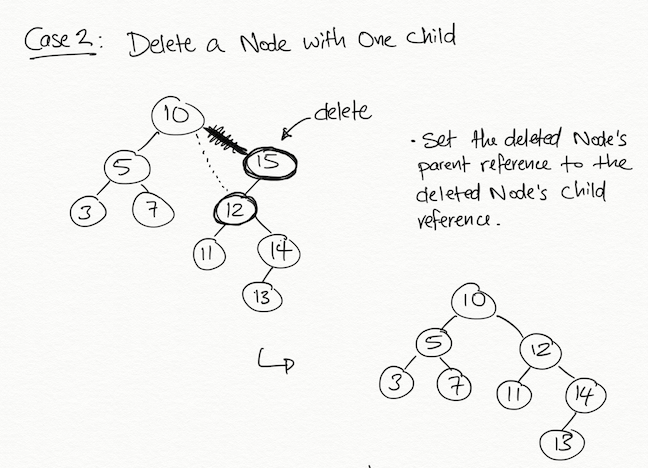 Case 2: Delete a Node with One Child
delete
10
15
5
3
7
12
11
14
13
• Set the deleted Node's
parent reference to the
deleted Node's child
reference.
10
5
12
3
7
11
14
13